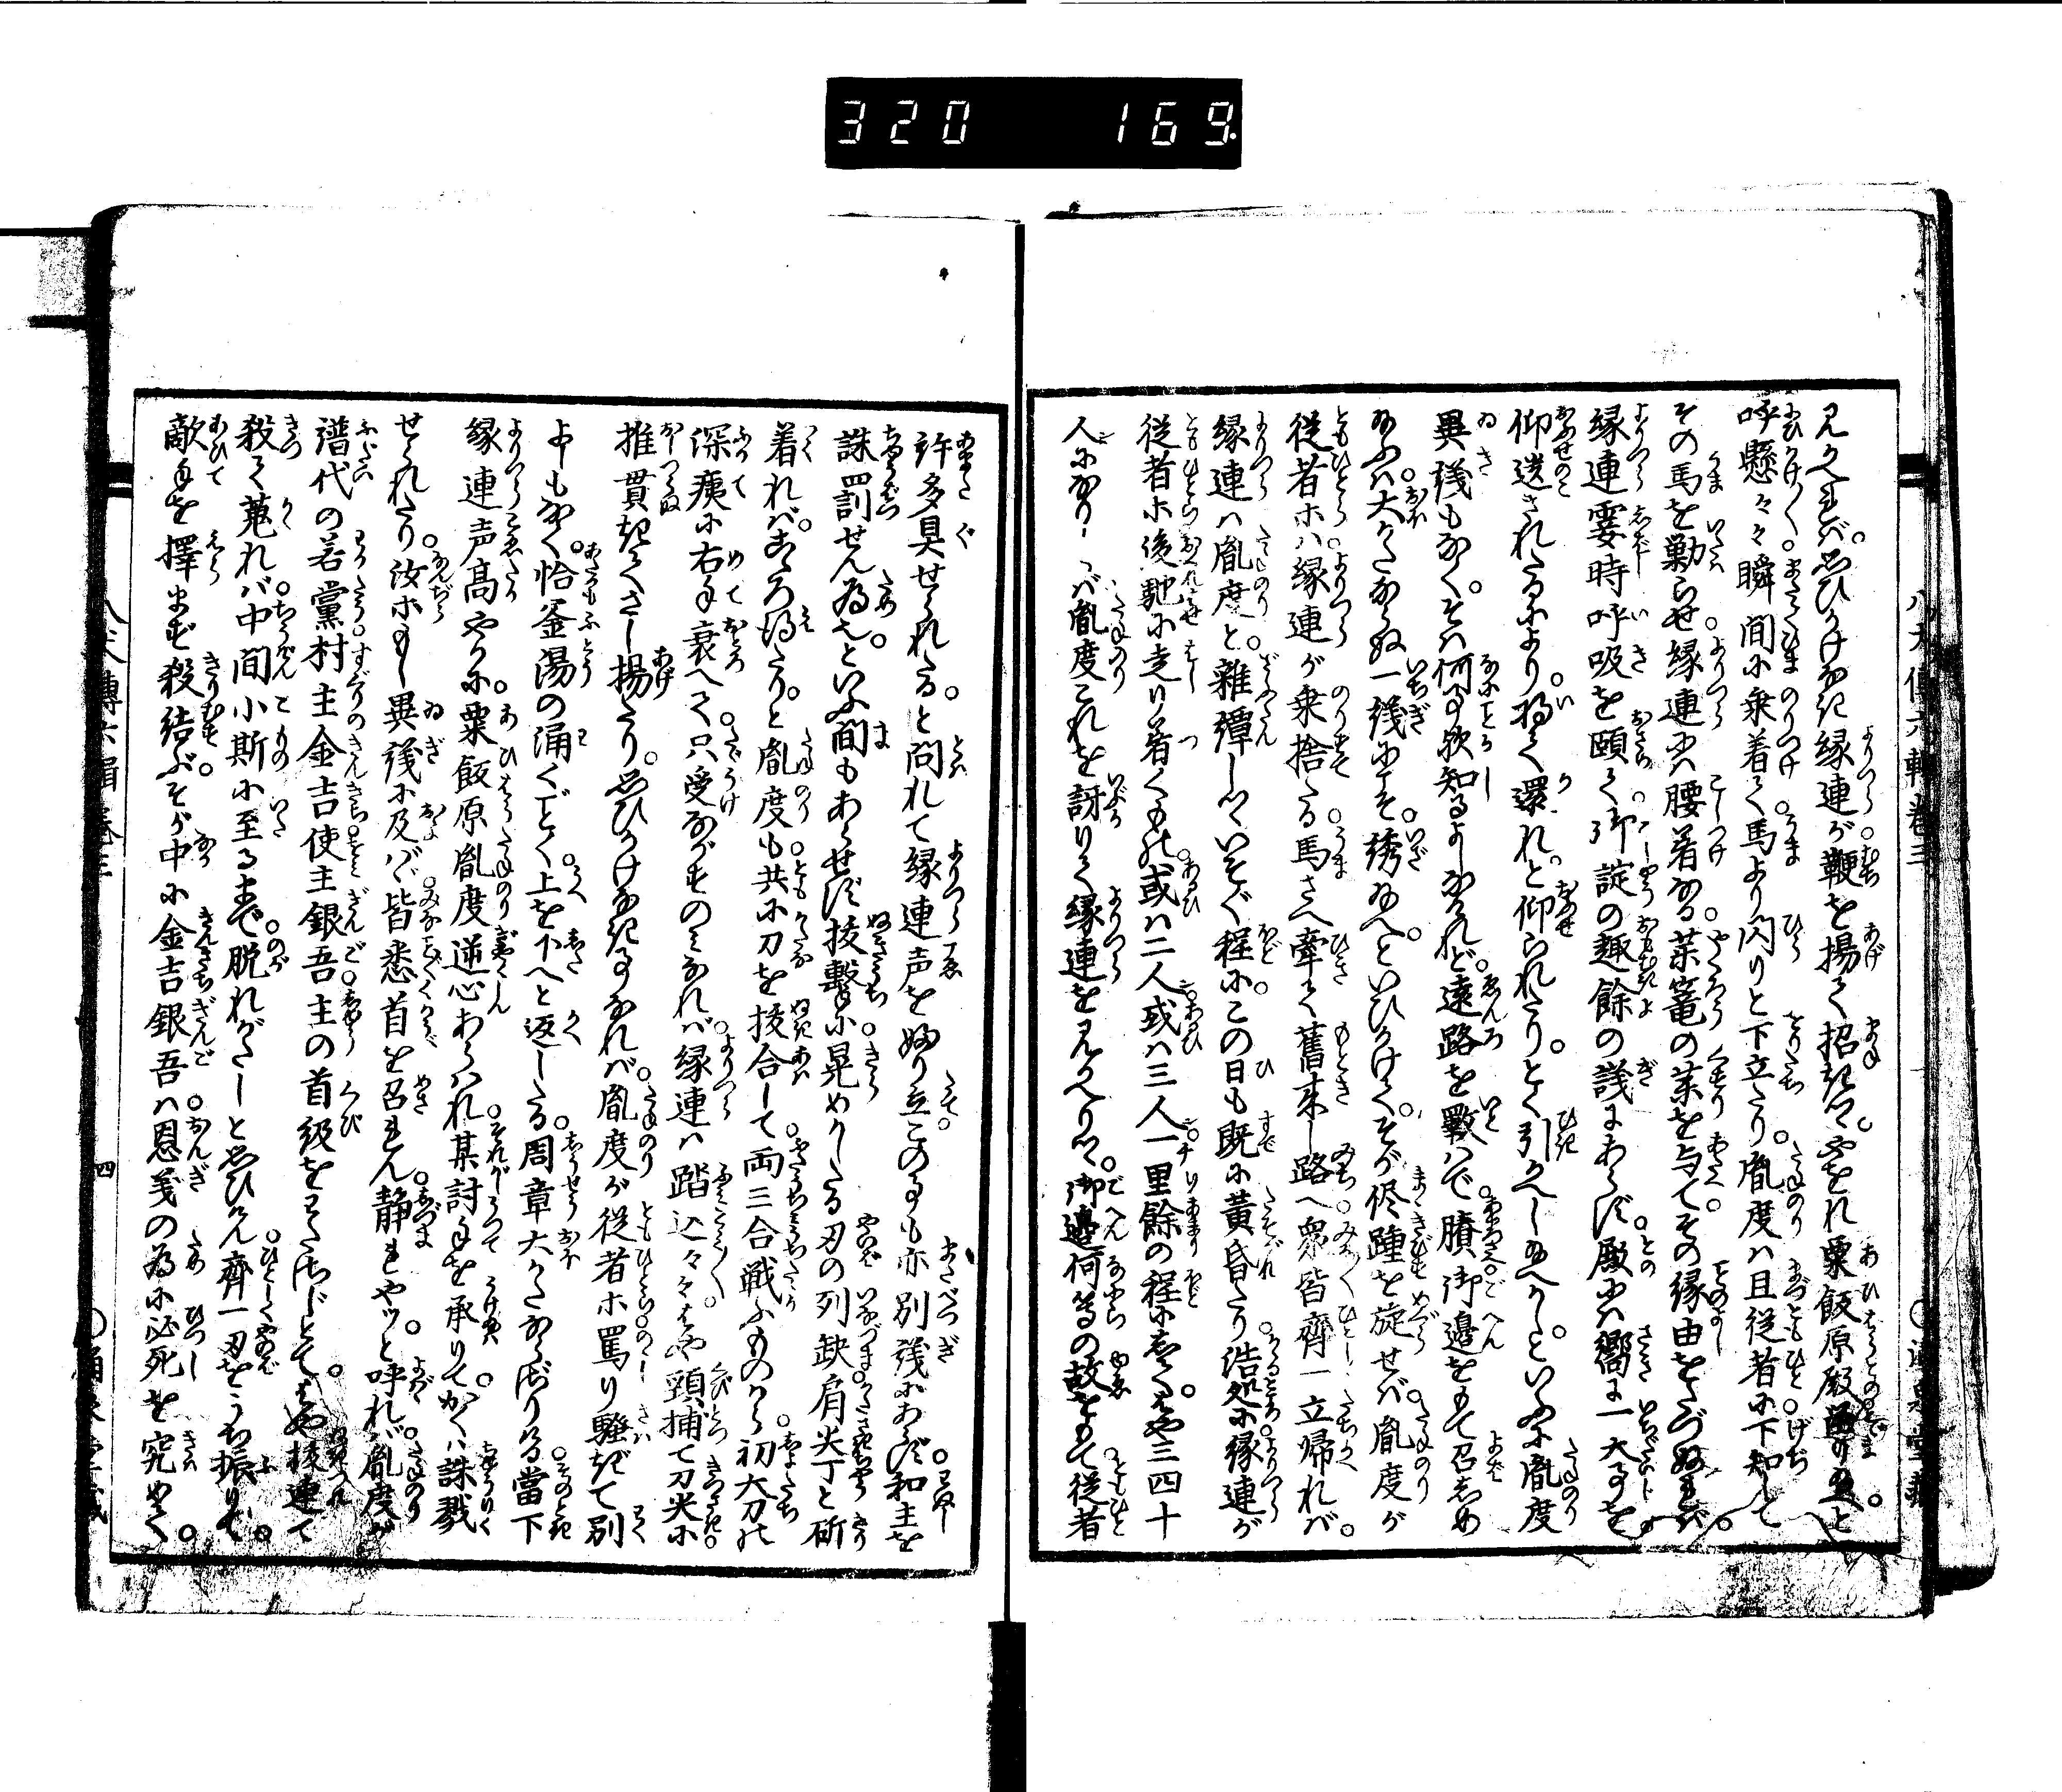 320 169
八犬傳六輯卷三
見かへれば。思ひかけなき縁連が鞭を揚て招きつゝ。やをれ粟飯原殿
呼懸々々瞬間に乗着て馬より閃りと下立たり。胤度は且従者に下知して
その馬を勦らせ縁連には腰着なる薬篭の薬を与てその縁由をたづぬれば。
縁連霎時呼吸を頤て御諚の趣餘の議にあらず。殿には嚮に一大事を
仰遺されたるにより。将て還れ。と仰られたり。とく引かへし給へかし。といふに胤度
異議もなく。そは何事欤知るよしなけれど。遠路を厭はで。臢御邊をもて召しめ
給ふは。大かたならぬ一議にこそ。誘給へ。といひかけて。そが侭踵を旋せば。胤度が
従者ホは。縁連が乗捨たる。馬さへ牽て舊来し路へ衆皆齊一立帰れば。
縁連は胤度と。雑譚しつゝいそぐ程に。この日も既に黄昏たり。浩処に縁連が
従者ホ後馳に走り着くもの。或は二人或は三人一里餘の程にしてはや三四十
人になりしかば胤度これを訝りて縁連を見かへりつゝ。御邊何等の故をもて従者
許多具せられたる。と問れて縁連声をふり立。この事も亦別議にあらず。和主を
誅罸せん為也。といふ間もあらせず抜撃に。晃めかしたる刃の列缺肩尖丁と斫
着れば。こころ得たり。と胤度も。共に刀を抜合して両三合戦ふものから初大刀の
深痍に右手衰へて。只受ながすのみなれば。縁連は踏込々々はや頸捕て刀尖に
推貫きてさし揚たり。思ひかけなき事なれば。胤度が従者ホ罵り騒ぎて別
よしもなく。恰釜湯の涌くごとく。上を下へと返したる。周章大かたならざりける。當下
縁連声高やかに。粟飯原胤度逆心あらはれ。某討手を承りて。かくは誅戮
せられたり。汝ホもし異議に及ばゞ皆悉首を召れん。静まれやッ。と呼れば。胤度が
譜代の若黨村主金吉使主銀吾。主の首級をわたさじとて。はや抜連て
殺て蒐れば。中間小斯に至るまで。脱れがたしと思ひけん。齊一刃をうち振りて。
敵手を擇まず殺結ぶ。そが中に金吉銀吾は。恩義の為に必死を究めて。
四